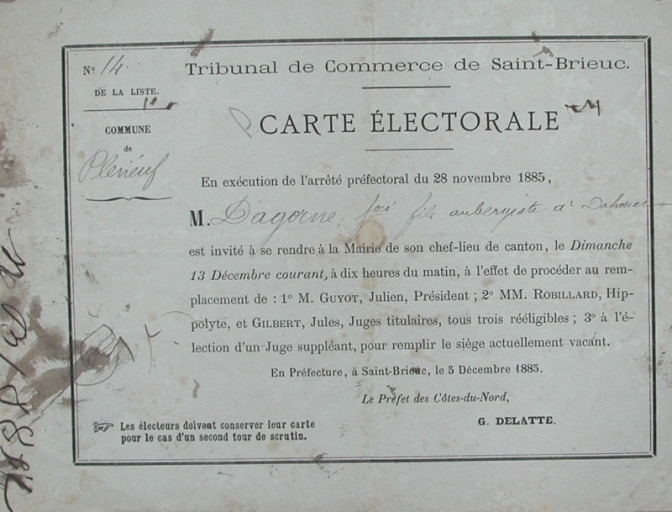 N° 14
DE LA LISTE.
COMMUNE
de
Pléneuf
Tribunal de Commerce de Saint-Brieuc.
CARTE ÉLECTORALE
En exécution de l'arrêté préfectoral du 28 novembre 1885,
M. Dagorne, fçois fils aubergiste à Dahouet
est invité à se rendre à la Mairie de son chef-lieu de canton, le Dimanche
13 Décembre courant, à dix heures du matin, à l'effet de procéder au rem-
placement de : 1° M. GUYOT, Julien, Président ; 2° MM. ROBILLARD, Hip-
polyte, et GILBERT, Jules, Juges titulaires, tous trois rééligibles ; 3° à l'é-
lection d'un Juge suppléant, pour remplir le siège actuellement vacant.
En Préfecture, à Saint-Brieuc, le 5 Décembre 1885.
Le Préfet des Côtes-du-Nord,
G. DELATTE.
Les électeurs doivent conserver leur carte
pour le cas d'un second tour de scrutin.